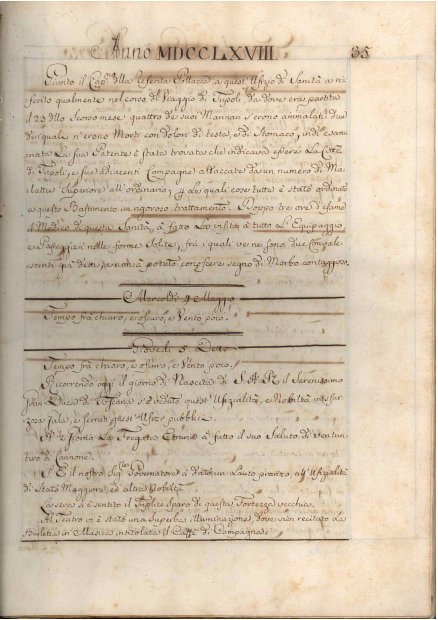 Anno MDCCLXVIII. 35
Giunto il Cap.º della riferita Pollacca a quest'Ufizio di Sanità à ri-
ferito qualmente nel corso di Viaggio di Tripoli, da dove era partito
il 23 dello Scorso mese quattro de suoi Marinari s'erono ammalati, e due
de quali n'erono Morti con dolori di testa, e di Stomaco, indi esami-
nata La sua Patente è stata trovata che indicava essere La Città
di Tripoli, e sue adiacenti Campagne attaccate da un numero di Ma-
lattie Superiore all'ordinario; per Le quali cose tutte è stato ordinato
a questo Bastimento un rigoroso trattamento. Doppo tre ore d'esame
il Medico di questa Sanità, à fatto La visita à tutto L'Equipaggio
e Passeggieri nelle forme Solite, frà i quali ve ne sono due Convale-
scenti, già d'en, e non à potuto conoscere segno di Morbo contaggioso.
Mercoldì 4 Maggio
Tempo frà chiaro, e oscuro, e Vento poco.
Giovedì 5 Detto
Tempo frà chiaro, e oscuro, e Vento poco.
Ricorrendo oggi il giorno di Nascita di S. A. R. il Serenissimo
Gran Duca di Toscana s'è veduto quest'Ufizialità, e Nobiltà in sfar-
zosa Gala, e serrati quest'Ufizi pubblici.
A mezzo Giorno La Fregata Etruria à fatto il suo Saluto di ventun
tiro di Cannone.
S. E. il nostro Sig.re Governatore à dato un Lauto pranzo, all'Ufizialità
di Stato Maggiore, ed altra Nobiltà.
La sera si è sentito il Triplice sparo di questa Fortezza vecchia.
Al Teatro vi è stato una Superba illuminazione, dove vien recitato La
Burletta in Musica intitolata il Caffè di Campagna.